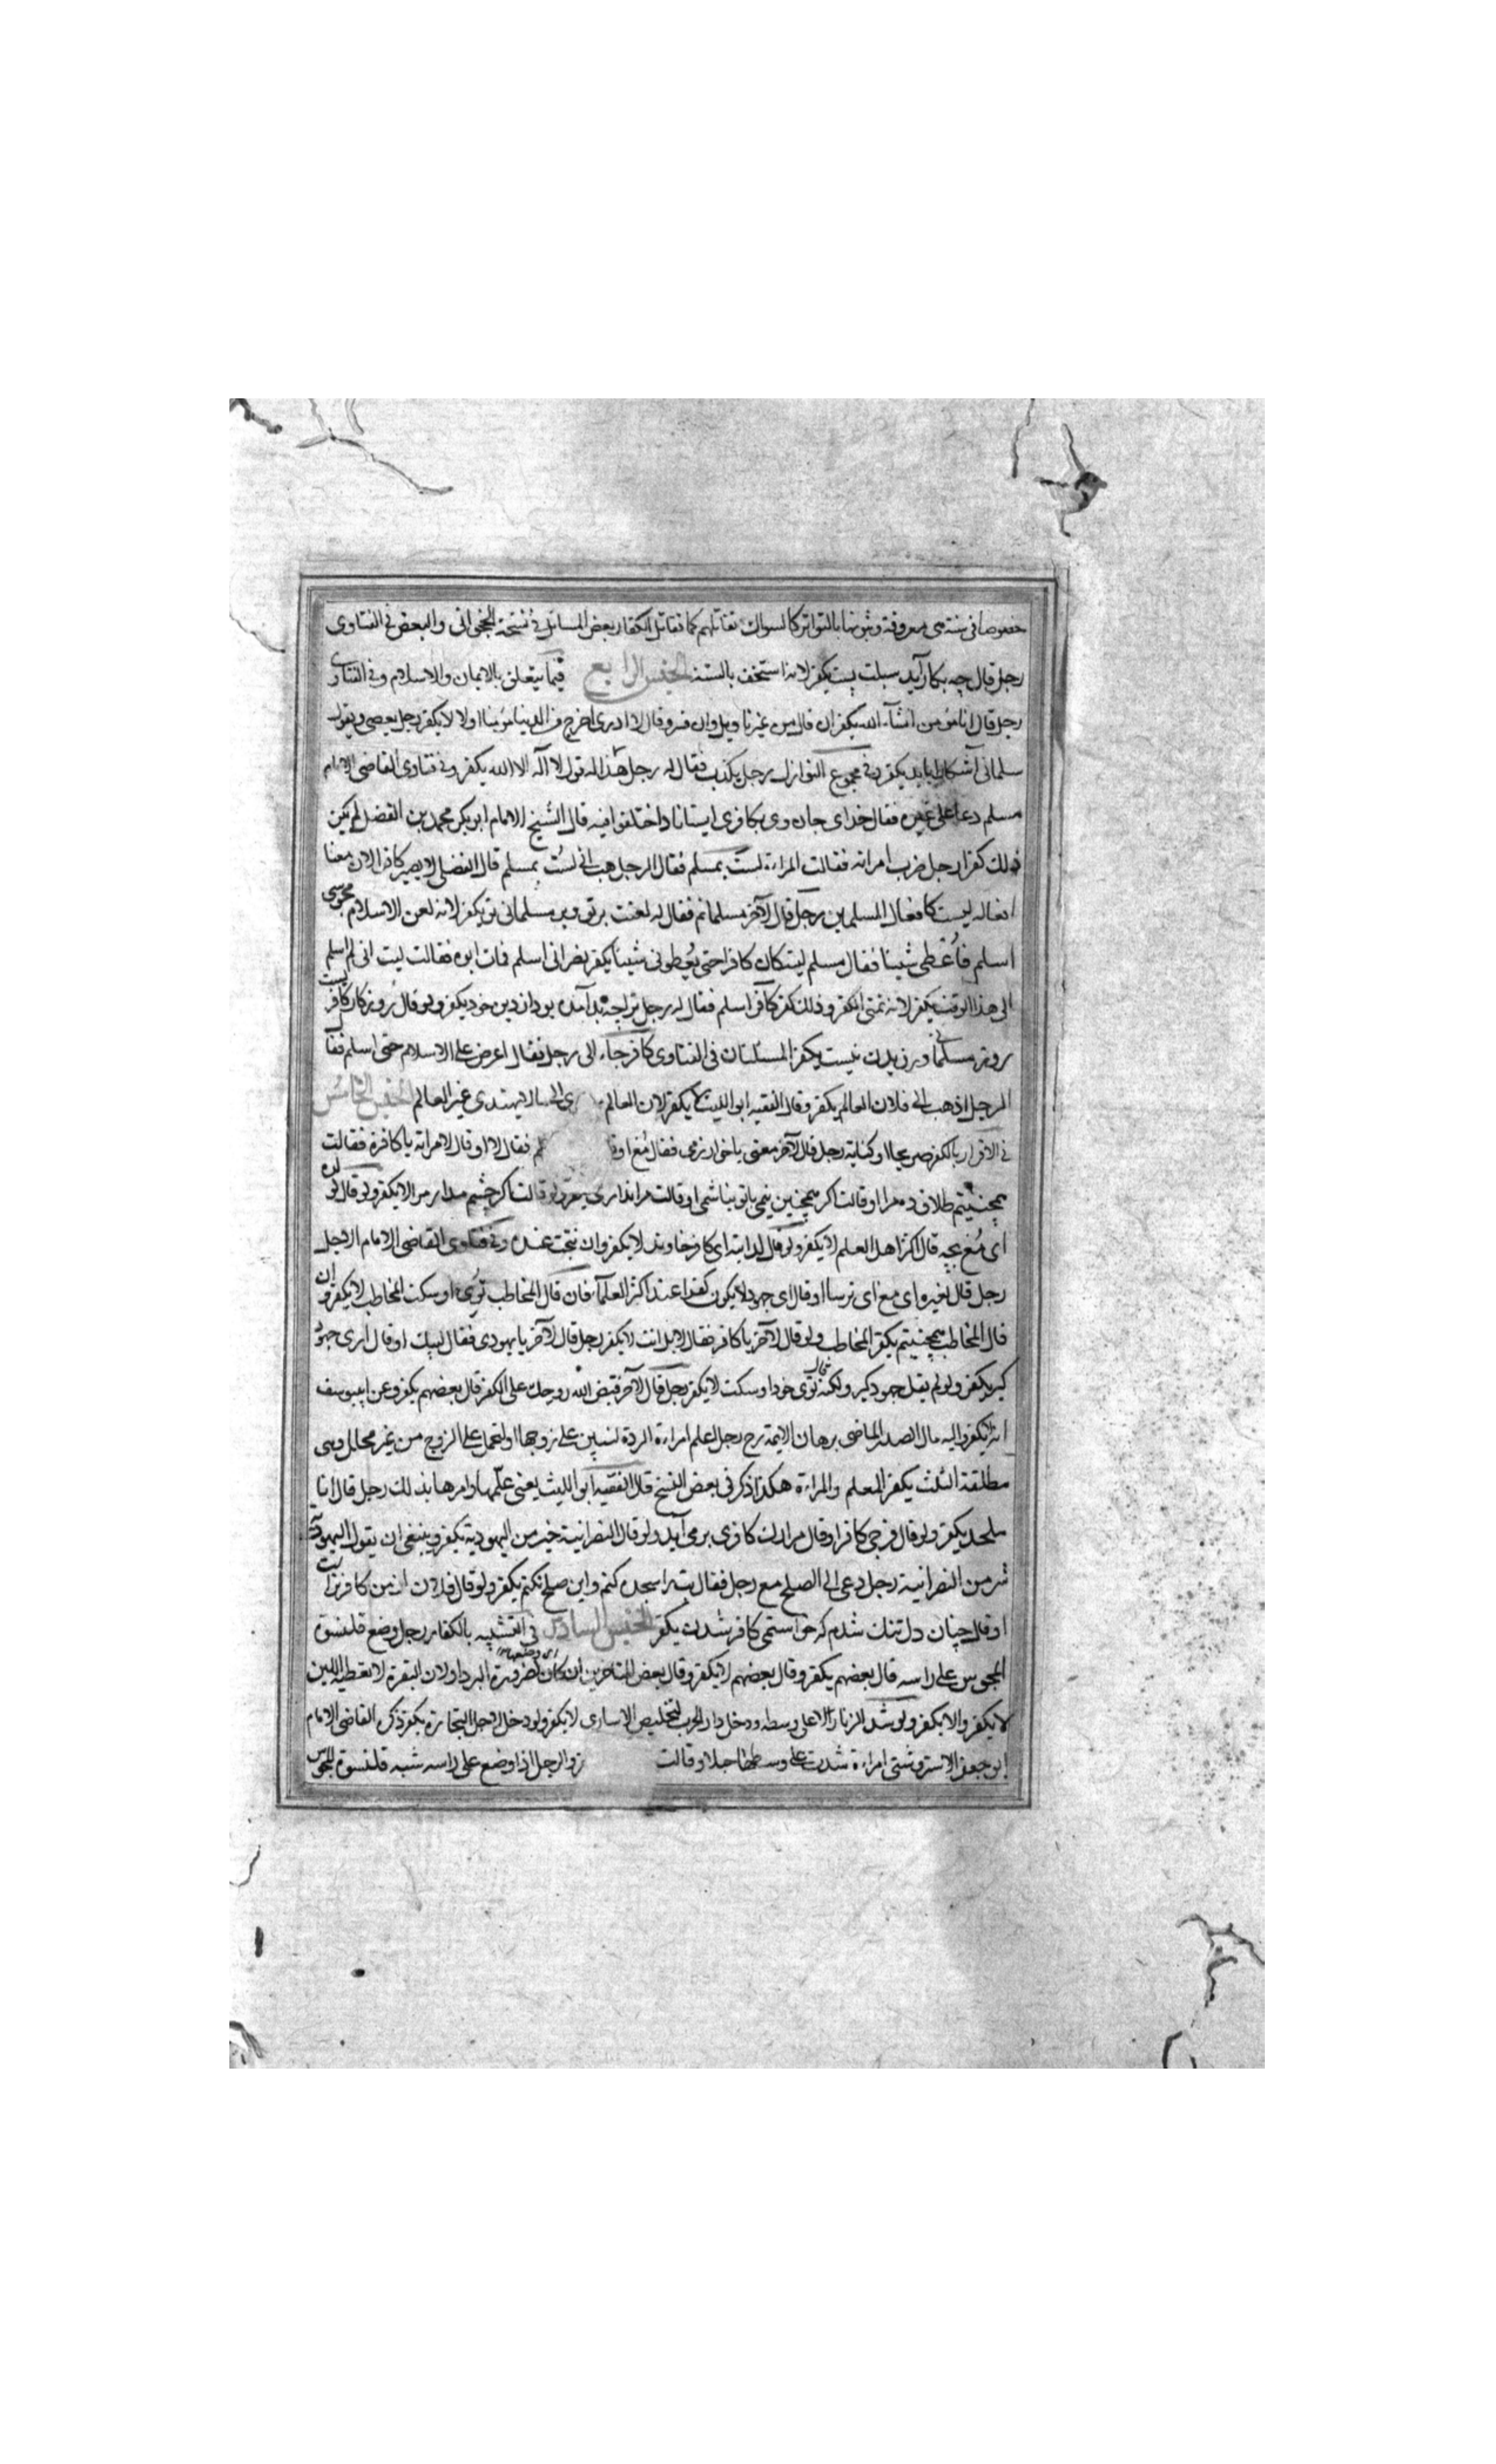 خصوصا فى سنة هى معروفة وثبوتها بالتواتر كالسواك نقاتلهم كما نقاتل الكفار بعض المسائل فى نسخة والبعض فى الفتاوى
رجل قال چه بكار آيد سبلت پست يكفر لانه استخف بالسنة الجنس الرابع فيما يتعلق بالايمان والاسلام وفى الفتاوى
رجل قال انا مؤمن انشآء الله يكفر ان قال من غير تاويل وان فسر وقال لا ادرى اخرج من الدنيا مؤمنا او لا لا يكفر رجل يعصى ويقول
سلمانى آشكارا بايد يكفر وفى مجموع النوازل رجل يكذب فقال له رجل هذا له قول لا آله الا الله يكفر وفى فتاوى القاضى الامام
مسلم دعا على غيره فقال خداى جان وى بكافرى ايستاناد اختلفوا فيه قال الشيخ الامام ابو بكر محمد بن الفضل لم يكن
ذلك كفرا رجل ضرب امراته فقالت المراءة لست بمسلم فقال الرجل هب انى لست بمسلم قال الفضلى لا يصير كافرا لان معنا
افعاله ليست كافعال المسلمين رجل قال لآخر مسلمانم فقال له لعنت بر تو وبر مسلمانى تو يكفر لانه لعن الاسلام مجوسى
اسلم فاُعطى شيئا فقال مسلم ليت كان كافرا حتى يُعطونى شيئا يكفر نصرانى اسلم فمات ابوه فقالت ليت انى لم اسلم
الى هذا الوقت يكفر لانه تمنى الكفر وذلك كفر كافر اسلم فقال له رجل ترا چه بد آمده بود از دين خود يكفر ولو قال روزكار كافر ليست
روز مسلمانى ورزيدن نيست يكفر المسئلتان فى الفتاوى كافر جاء الى رجل فقال اعرض على الاسلام حتى اسلم فقا
الرجل اذهب الى فلان العالم يكفر وقال الفقيه ابو الليث لا يكفر لان العالم الى ما لا يهتدى غير العالم الجنس الخامس
فى الاقرار بالكفر صريحا او كناية رجل قال لآخر معنى فقال فقال لا او قال لامراته يا كافرة فقالت
همچنينم طلاق ده مرا او قالت اكر همچنين نيمى با تو نباشمى او قالت مرا ندارى يكفر ولو قالت اكر چنينم مدار مرا لا يكفر ولو قال لو
اى مُغ بچه قال اكثر اهل العلم لا يكفر ولو قال لدابته اى كافر خاوند لا يكفر وان نتجت عنده وفى فتاوى القاضى الامام الاجل
رجل قال لغيره اى مغ اى ترسا او قال اى جهود لا يكون كفرا عند اكثر العلمآء فان قال المخاطب توئى او سكت المخاطب لا يكفر وان
قال المخاطب همچنينم يكفر المخاطب ولو قال لآخر يا كافر فقال لا بل انت لا يكفر رجل قال لآخر يا يهودى فقال لبيك او قال آرى جهود
كير يكفر ولو لم يقل جهود كير ولكنه قال توى خود او سكت لا يكفر رجل قال لآخر قبض الله روحك على الكفر قال بعضهم يكفر وعن ابييوسف
انه لا يكفر واليه مال الصدر الماضى برهان الايمة رح رجل اعلم امراءة الردة لتبين على زوجها او لتحل على الزوج من غير محلل وهى
مطلقة الثلث يكفر المعلم والمراءة هكذا ذكر فى بعض النسخ قال الفقيه ابو الليث يعنى علّمها وامرها بذلك رجل قال انا
ملحد يكفر ولو قال او قال مرا از كافرى بر مى آيد ولو قال النصرانية خير من اليهودية يكفر وينبغى ان يقول اليهودية
شر من النصرانية رجل دعى الى الصلح مع رجل فقال بت را سجده كنم واين صلح نكنم يكفر ولو قال فلان از من كافر تر است
او قال چنان دل تنك شدم كه خواستمى كافر شدن يكفر الجنس السادس فى التشبيه بالكفار رجل وضع قلنسوة
المجوس على راسه قال بعضهم يكفر وقال بعضهم لا يكفر وقال بعض المتاخرين ان كان لضرورة البرد او لان البقرة لا تعطيه اللبن
لا يكفر والا يكفر ولو شد الزنار الا على وسطه ودخل دار الحرب لتخليص الاسارى لا يكفر ولو دخل لاجل التجارة يكفر ذكر القاضى الامام
ابو جعفر الاستروشنى امراءة شدت على وسطها حبلا وقالت والرجل اذا وضع على راسه شبه قلنسوة المجوس